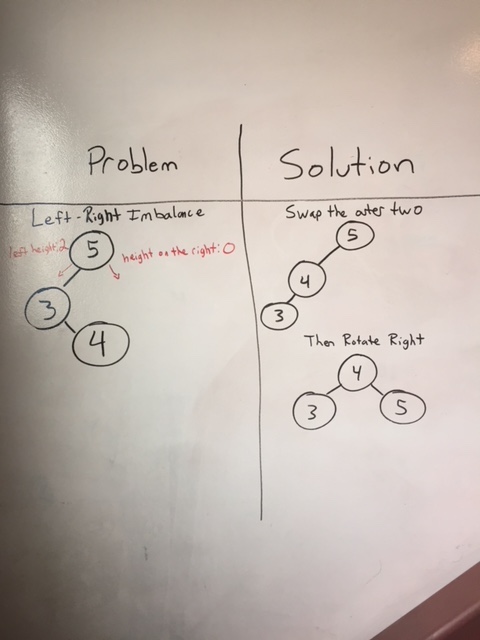 Problem
Left-Right Imbalance
left height:2
5
height on the right:0
3
4
Solution
Swap the outer two
5
4
3
Then Rotate Right
4
3
5